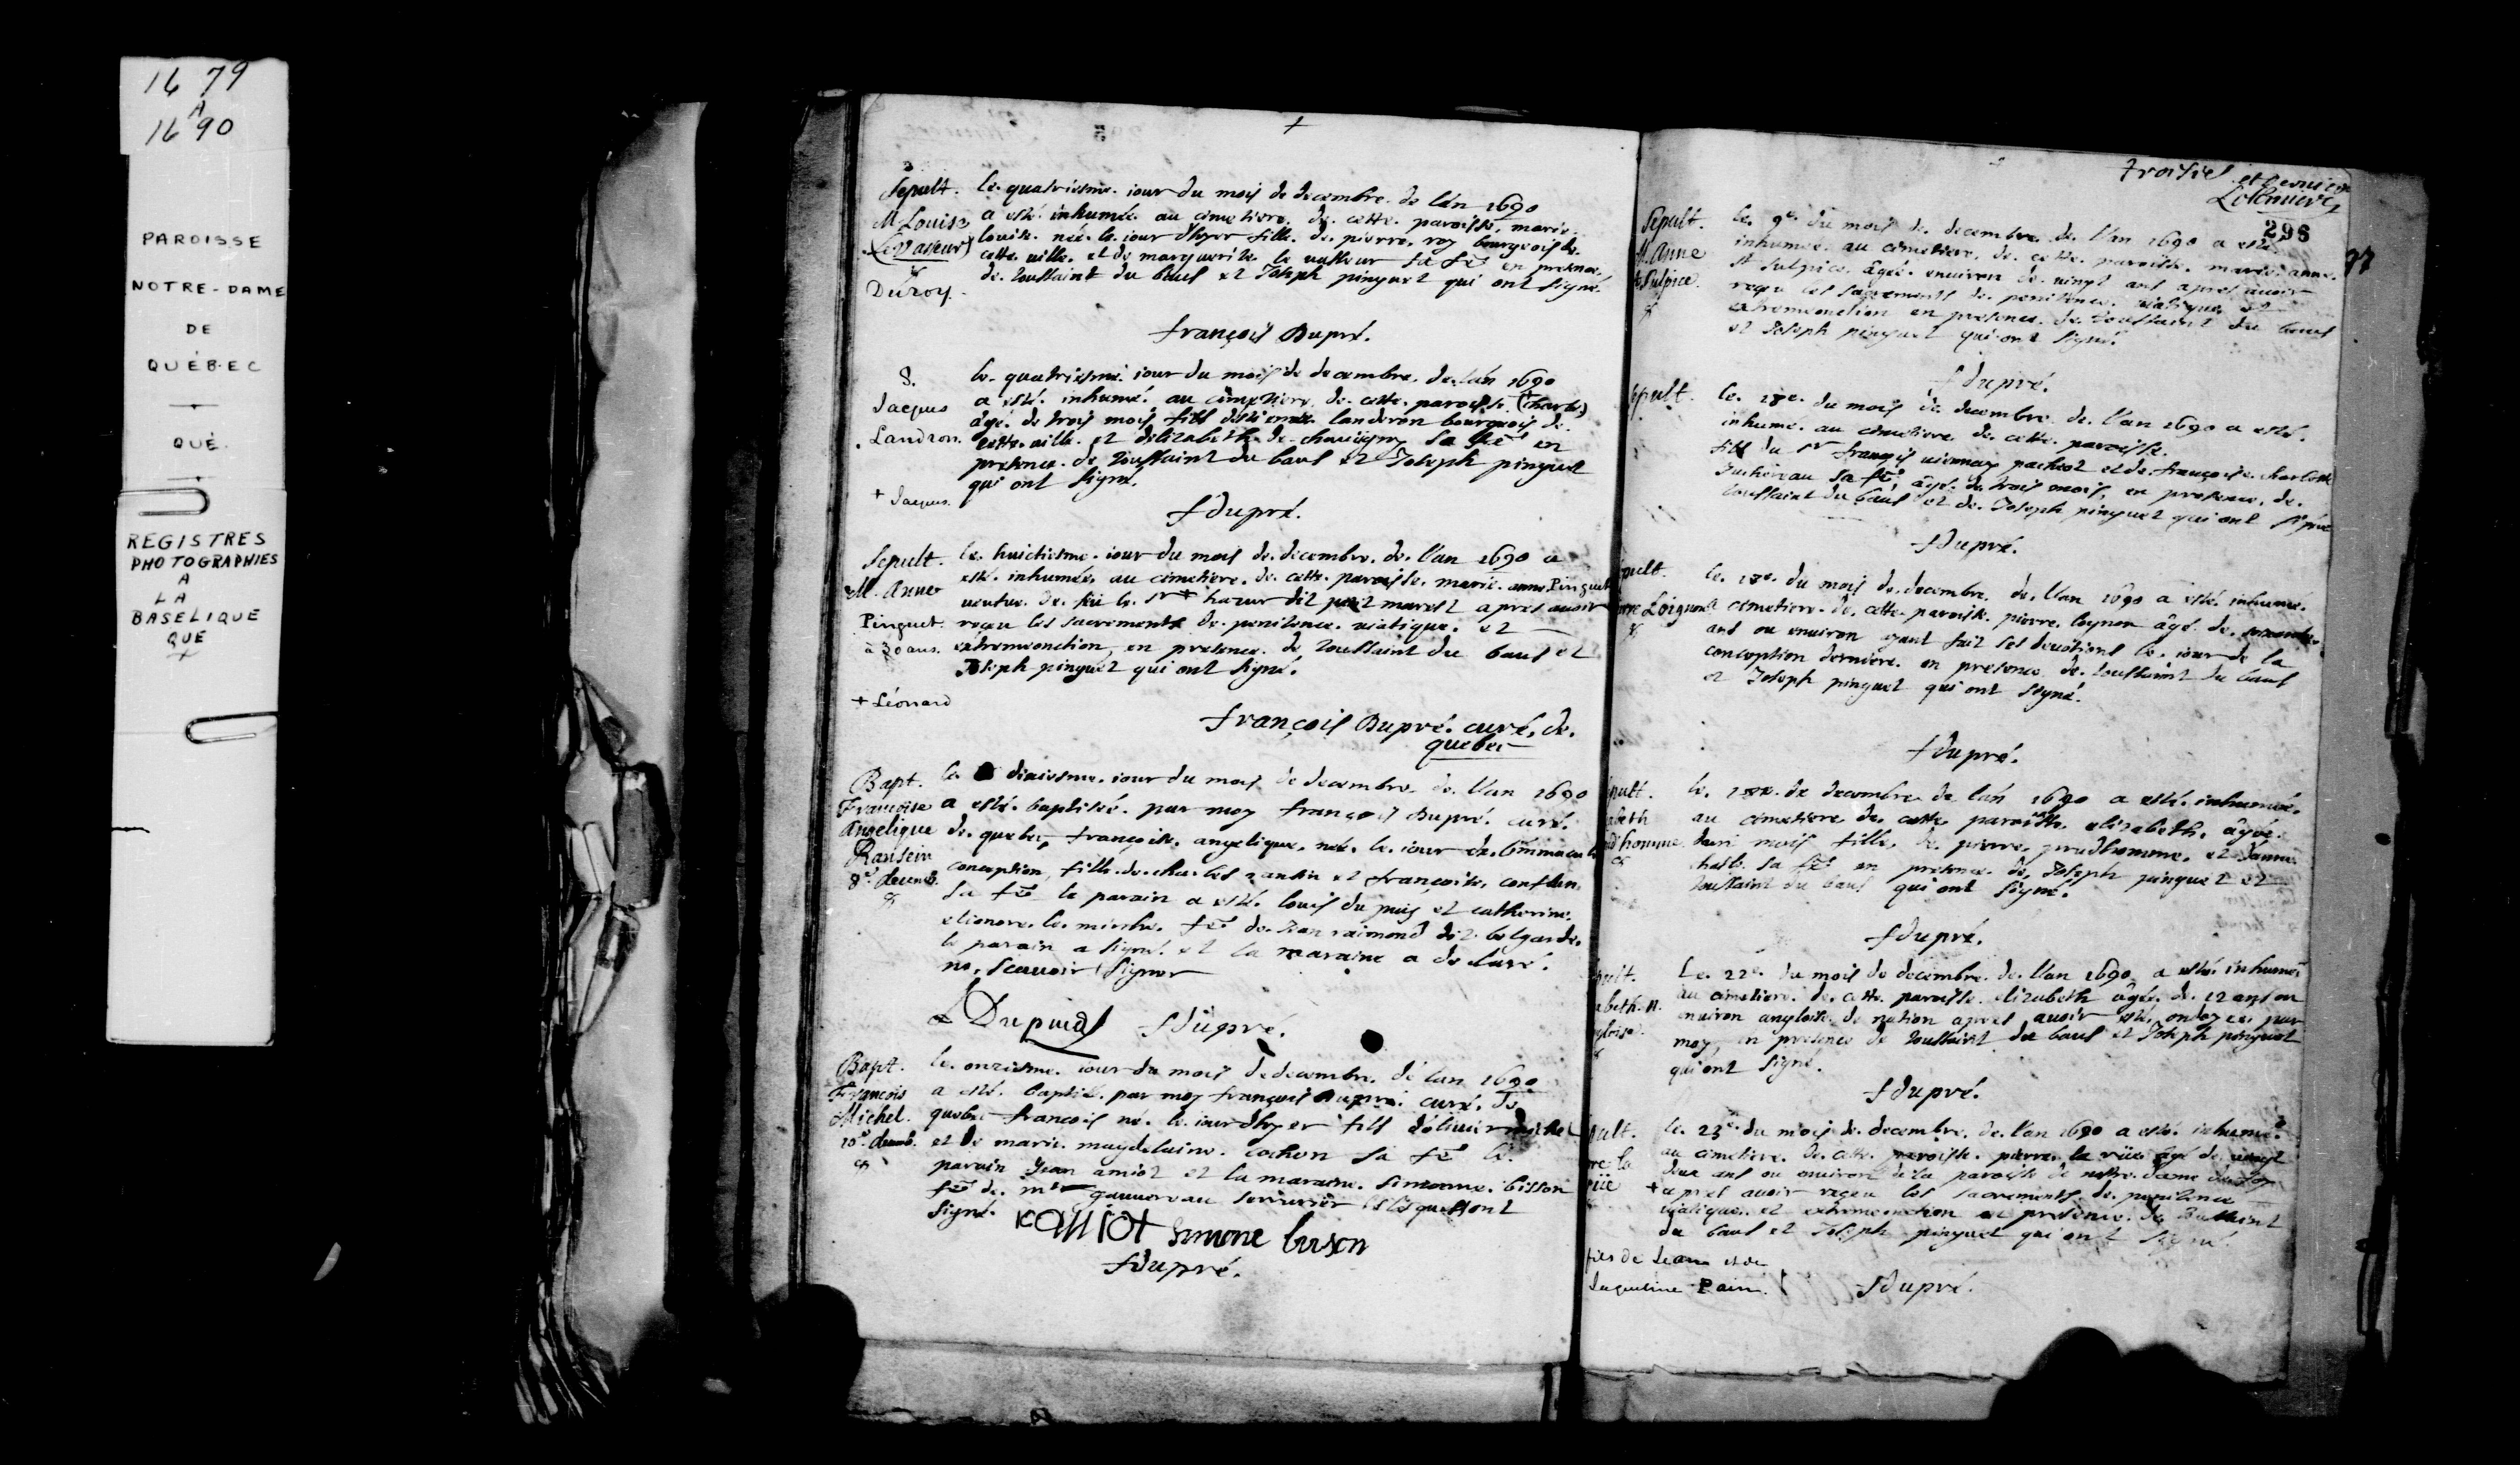 1679
A
1690
PAROISSE
NOTRE-DAME
DE
QUÉBEC
QUÉ.
REGISTRES
PHOTOGRAPHIES
A
LA
BASELIQUE
QUE
+
+
Sepult.
M Louise
Levasseur
&
Duroy.
le quatriesme iour du mois de decembre de lan 1690
a esté inhumée au cimetiere de cette paroisse marie
louise née le iour d'hyer fille de pierre roy bourgeois de
cette ville et de marguerite le vasseur sa fe en presence
de toussaint du baus et Joseph pinguet qui ont signé.
françois Dupré.
S.
Jacques
Landron.
+ Jacques.
le quatriesme iour du mois de decembre de lan 1690
a esté inhumé au cimetiere de cette paroisse (Charles)
âgé de trois mois fils destienne landeron bourgeois de
cette ville et delizabeth de chavigny sa fe en
presence de toussaint du baus et Joseph pinguet
qui ont signé.
fdupré.
Sepult.
M. Anne
Pinguet.
à 30 ans.
+ Léonard
le huictiesme iour du mois de decembre de l'an 1690 a
esté inhumée au cimetiere de cette paroisse marie anne Pinguet
veufve de feu le Sr + hazur dit petit marest apres avoir
reçeu les sacrements de penitence viatique et
extremeonction, en presence de toussaint du baus et
Joseph pinguet qui ont signé.
françois Dupré curé de
quebec
Bapt.
Françoise
Angelique
Ransein
8e decemb.
&
le dixiesme iour du mois de decembre de l'an 1690
a esté baptisée par moy françois Dupré curé
de quebec françoise angelique née le iour de limmacule
conception, fille de charles ransin et françoise conflan
sa fe le parain a esté louis du puis et catherine
elionore le mindre fe de Jean raimond dit belgarde
le parain a signé et la maraine a declaré
ne scavoir signer
L Dupuis fdupré.
Bapt.
François
Michel.
10e decemb.
&
le onziesme iour du mois de decembre de lan 1690
a esté baptisé par moy françois Dupré curé de
quebec françois né le iour d'hyer fils dolivier michel
et de marie magdelaine cochon sa fe le
parain Jean amiot et la maraine simonne bisson
fe de mr gauvereau serrurier lesquels ont
signé.
amiot simone buson
fdupré.
troisiel et dernier
298
97
Sepult.
M. Anne
St Sulpice.
&
le 9e du mois de decembre de l'an 1690 a esté
inhumée au cimetiere de cette paroisse marie anne
St Sulpice âgée environ de vingt ans apres avoir
reçeu les sacrements de penitence viatique et
extremeonction en presence de toussaint du baus
et Joseph pinguet qui ont signé.
fdupré.
epult.
le 18e du mois de decembre de l'an 1690 a esté
inhumé au cimetiere de cette paroisse
fils du Sr françois viennay pachot et de françoise charlotte
Juchereau sa fe âgé de trois mois, en presence de
toussaint du baus et de Joseph pinguet qui ont signé
fdupré.
pult.
rre Loignon
&
le 18e du mois de decembre de l'an 1690 a esté inhumé
cimetiere de cette paroisse pierre loynon âgé de
ans ou environ ayant fait ses devotions le iour de la
conception derniere en presence de toussaint du baus
et Joseph pinguet qui ont signé.
fdupré.
pult.
abeth
udhomme
&
le 18e de decembre de lan 1690 a esté inhumée
au cimetiere de cette paroisse elizabeth âgée
dun mois fille de pierre prudhomme et danne
chasle sa fe en presence de Joseph pinguet et
toussaint du baus qui ont signé.
fdupré.
pult.
abeth N.
gloise.
&
Le 22e du mois de decembre de l'an 1690 a esté inhumée
au cimetiere de cette paroisse elizabeth âgée de 12 ans ou
environ angloise de nation apres avoir esté ondoyée par
moy en presence de toussaint du baus et Joseph pinguet
qui ont signé.
fdupré.
pult.
rre la
rüe
le 23e du mois de decembre de l'an 1690 a esté inhumé
au cimetiere de cette paroisse pierre la rüe âgé de vingt
deux ans ou environ de la paroisse de nostre dame
+ apres avoir reçeu les sacrements de penitence
viatique et extremeonction en presence de toussaint
du baus et Joseph pinguet qui ont signé.
fils de Jean et de
Jaqueline Pain.
fdupré.